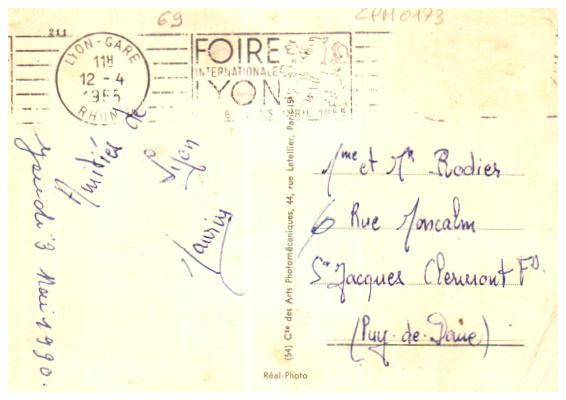 69
CPM0173
211
LYON-GARE
11H
12 - 4
1955
RHONE
FOIRE
INTERNATIONALE
LYON
1955
Amitiés de
Lyon
Jeudi 3 Mai 1990.
(54) Cie des Arts Photomécaniques, 44, rue Letellier, Paris-15e
Réal-Photo
Mme et Mr Rodier
6 Rue Moncalm
St Jacques Clermont Fd.
(Puy-de-Dôme)